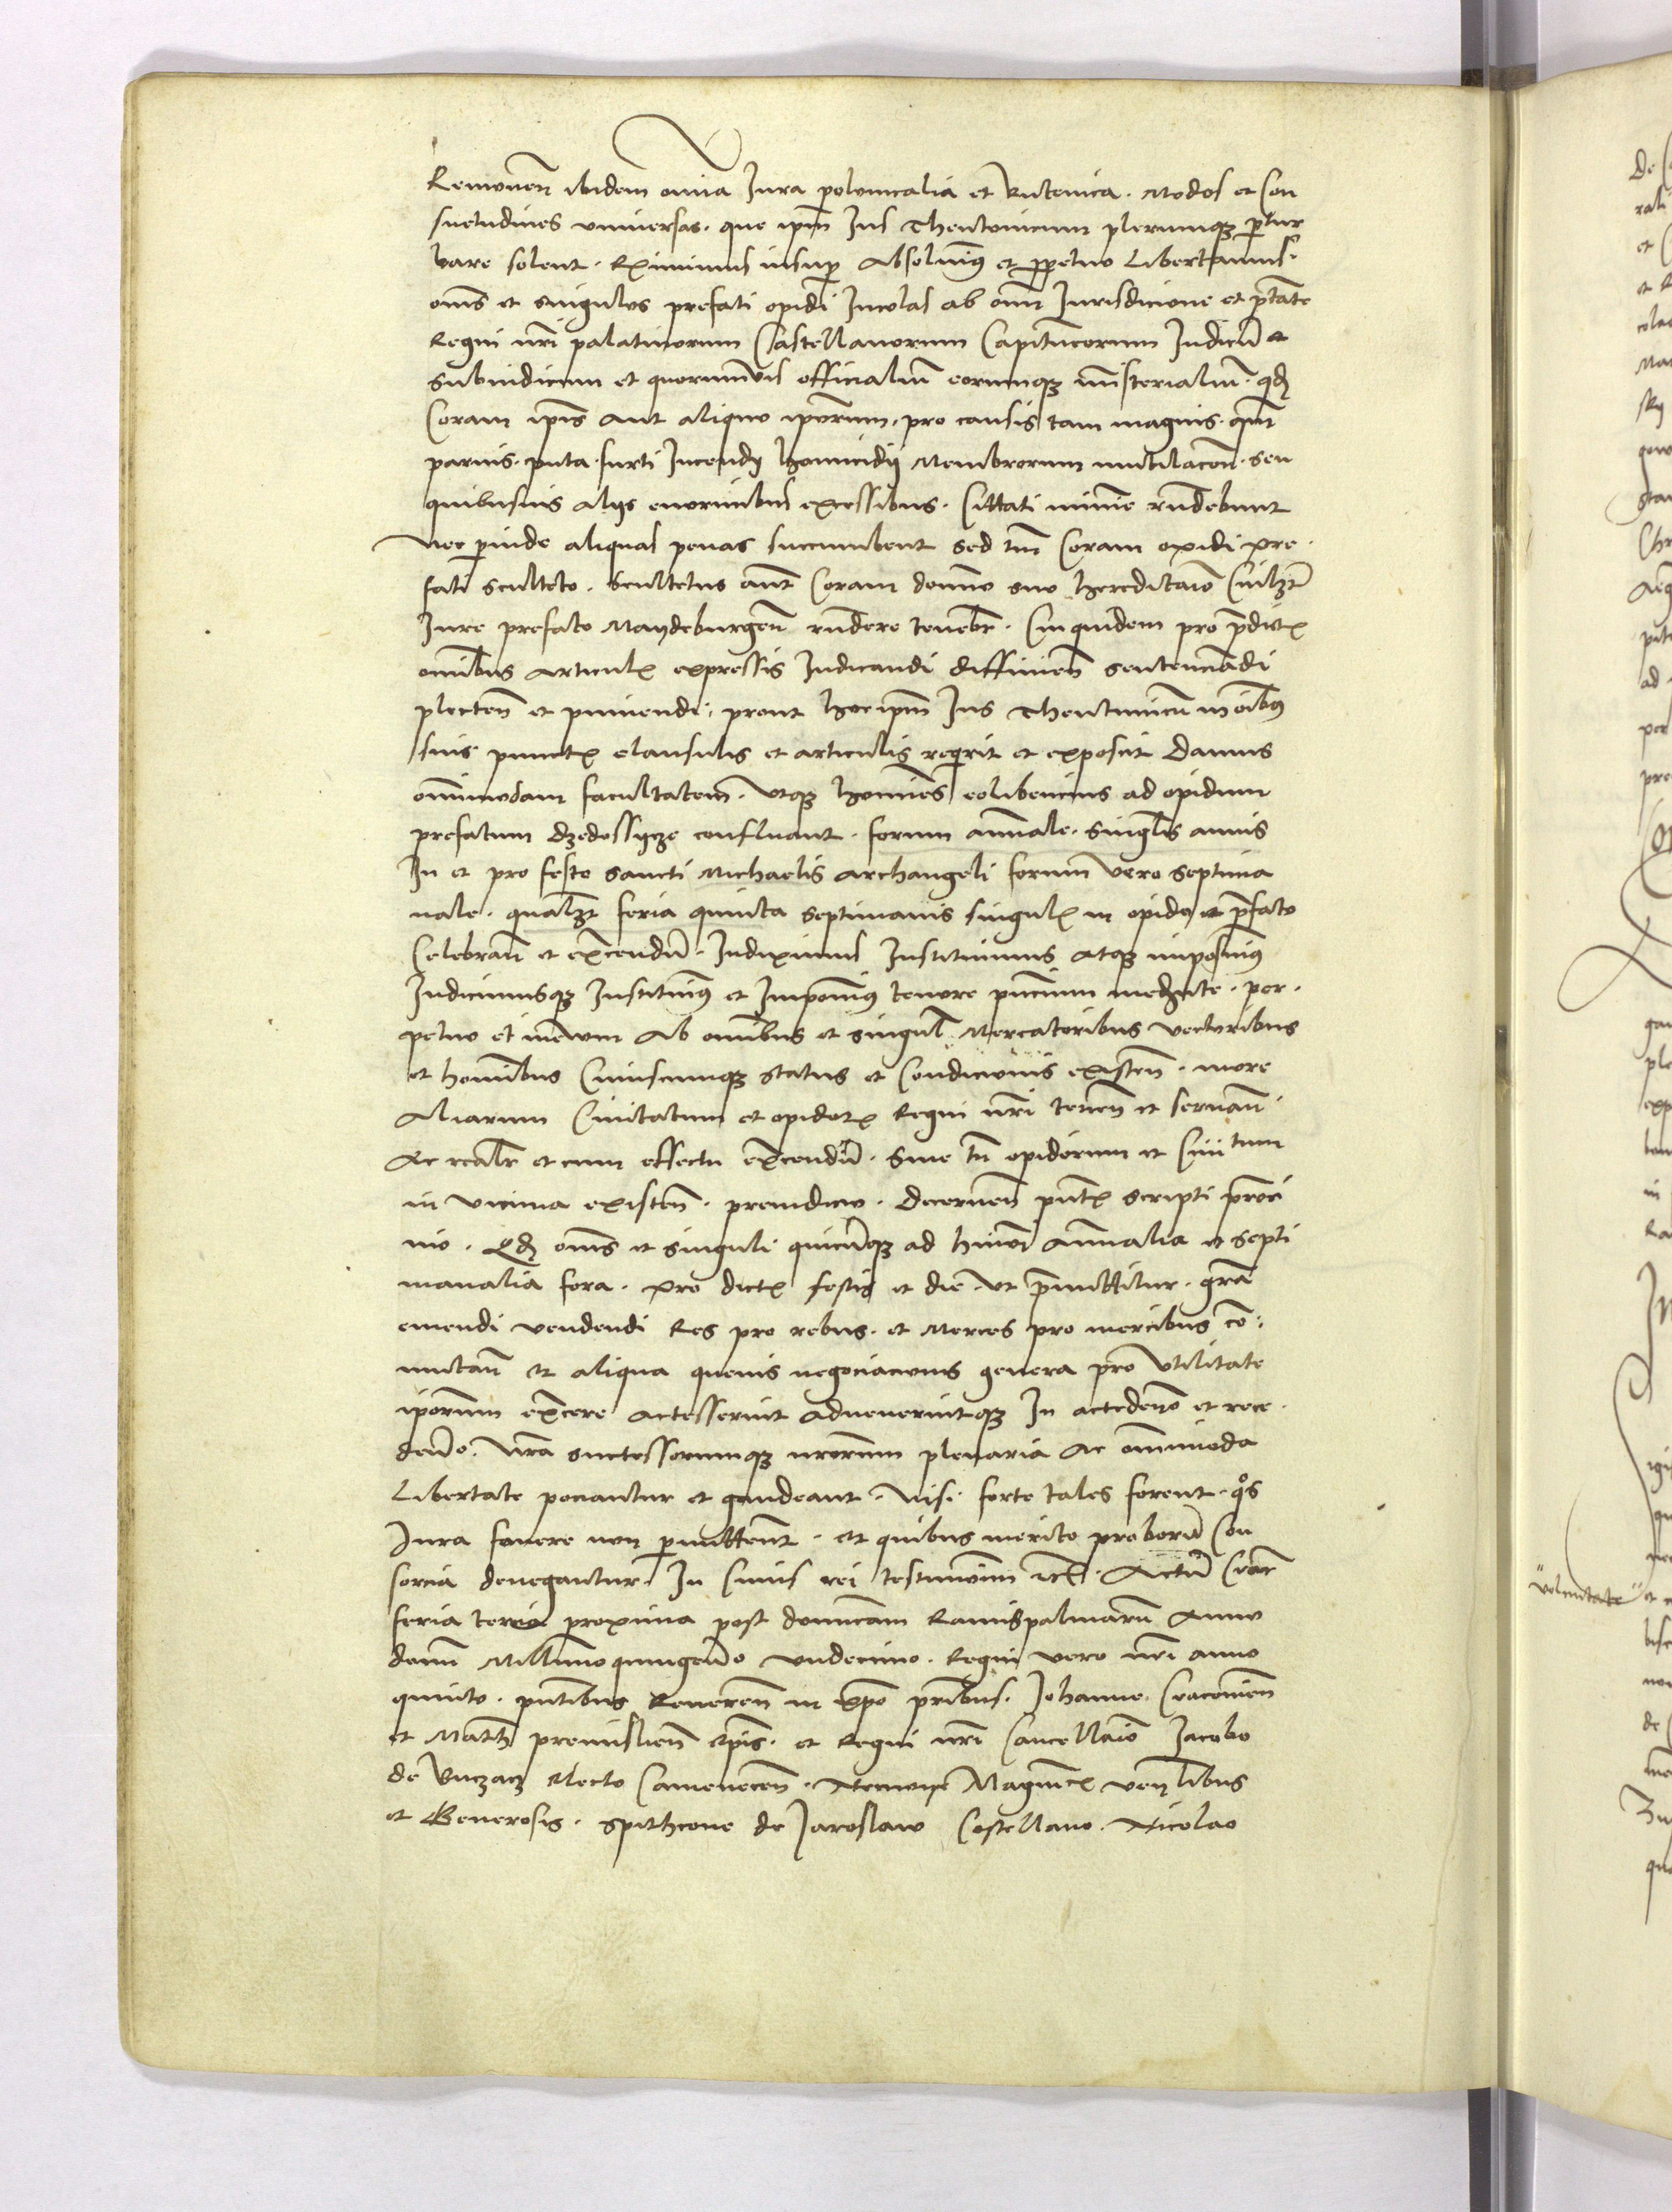 Removen ibidem omnia Jura polonicalia et Rutenica. Modos et Con
suetudines universas. que ipm Jus Theutonicum plerumqꝫ ptur
bare solent. Eximimus insup Absolvimꝰ et ppetuo Libertamus.
oms et singulos prefati opidi Incolas ab omi Jurisdicione et ptate
Regni nri palatinorum Castellanorum Capitaneorum Judicu et
Subiudicum et quorumvis officialiu eorumqꝫ ministerialiu. qd
Coram ipis aut aliquo iporum. pro causis tam magnis. qm
parvis. puta. furti Incendy homicidij Membrorum mutilacon. seu
quibusvis alijs enormibus excessibus. Cittati minime rndebunt
nec pinde aliquas penas succumbent sed tm Coram opidi pre
fati sculteto. Scultetus aut Coram domno suo hereditaio Civilꝫr
Jure prefato Maydeburgen rndere tenebr. Cui quidem pro pdictꝭ
omibus articulꝭ expressis Judicandi diffinien sentenciadi
plecten et puniendi. prout hoc ipm Jus Theutunicu in oibꝰ
suis punctꝭ clausulis et articulis reqrit et exposcit Damus
omimodam facultatem. utqꝫ homines eo libencius ad opidum
prefatum Dzedossycze confluant. forum annuale. singulis annis
In et pro festo sancti Michaelis archangeli forum vero septima
nale. qualꝫt feria quinta septimanis singulꝭ in opido et pfato
Celebran et excendu. Induximus Instituimus atqꝫ imposuimꝰ
Inducimusqꝫ Instituimꝰ et Imponimꝰ tenore pncium medꝫnte. per
petuo et in evum Ab omibus et singul Mercatoribus vectoribus
et homibus Cuiuscumqꝫ status et Condicionis existen. more
Aliarum Civitatum et opidorꝭ Regni nri tenen et servan
Ac realr et cum effectu excendu. Sine tn opidorum et Civitum
in vicina existen. preiudicio. Decernen pntꝭ scripti proci
nio. Qd oms et singuli quicuqꝫ ad hmoi Annualia et septi
manalia fora. pro dictꝭ festis et die ut pmittitur. gra
emendi vendendi Res pro rebus. et Merces pro mercibus co
mutan et aliqua quevis negociacionis genera pro utilitate
iporum excere accesserint advenerintqꝫ In accedeno et rece
deno. nra successorumqꝫ nrorum plenaria ac omimoda
Libertate pociantur et gaudeant. Nisi forte tales forent. qos
Jura fovere non pmittent. et quibus merito proboru Con
sorcia denegantur. In Cuius rei testimoium etc. Actu Crac
feria tercia proxima post domicam Ramispalmaru Anno
domi Millimo quingeno undecimo. Regni vero nri anno
quinto. pntibus Reveren in xpo pribus. Johanne Cracovien
et Mathia premislien epis. et Regni nri Cancellaio Jacobo
de Buczacz electo Camenecen. Necnon Magnicꝭ venlibus
et Generosis. Spithcone de Jaroslaw Castellano. Nicolao
"voluntate"